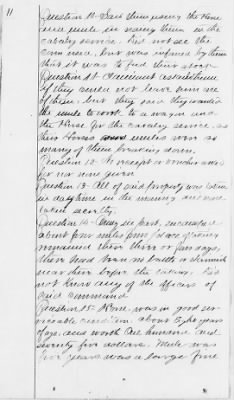 11
Question 10 - Said them parcy the Horse
and mule in using them in the
cavalry service. Did not see the
corn used, but was informed by them
that it was to feed their stock.
Question 11 - I asked them
if they could not leave him one
of them, but they said they wanted
the mule to work to a wagon and
the Horse for the cavalry service, as
their Horses and mules were as
many of them breaking down.
Question 12 - No receipt or voucher asked
for nor none given
Question 13 - All of said property was taken
in day time in the morning and none
taken secretly.
Question 14 - Army in part, encamped
about four miles from place of taking
remained there three or four days,
there had been no battle or skirmish
near there before the taking. Did
not know any of the officers of
said command
Question 15 - Horse, was in good ser-
viceable condition, about years
of age, and worth one hundred and
seventy five dollars. Mule was
five years was a large fine